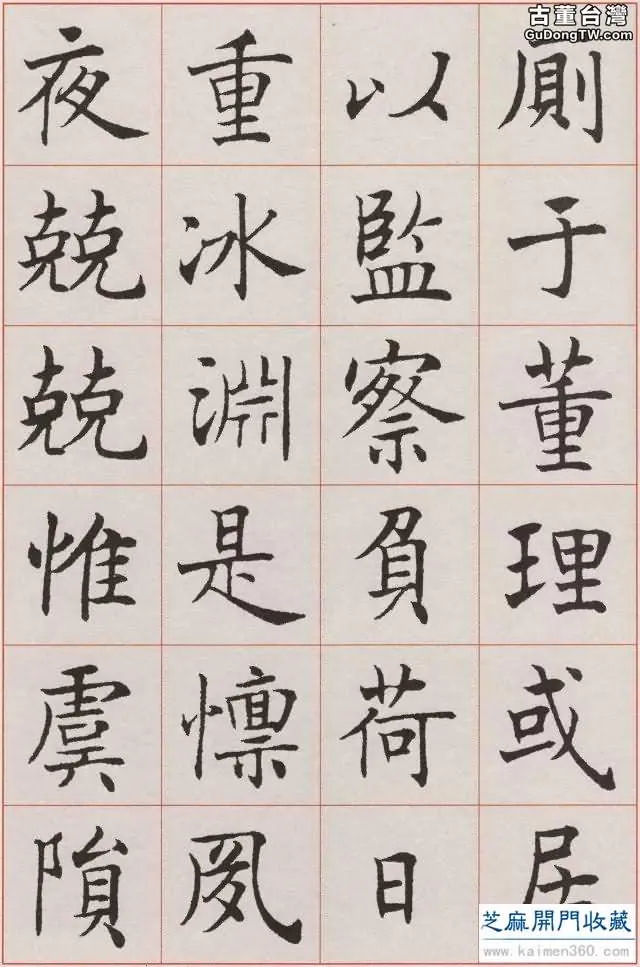 古董台灣
GuDongTW.com
廁于董理或居
以監察負荷日
重冰淵是懍夙
夜兢兢惟虞隕
芝麻開門收藏
www.kaimen360.com